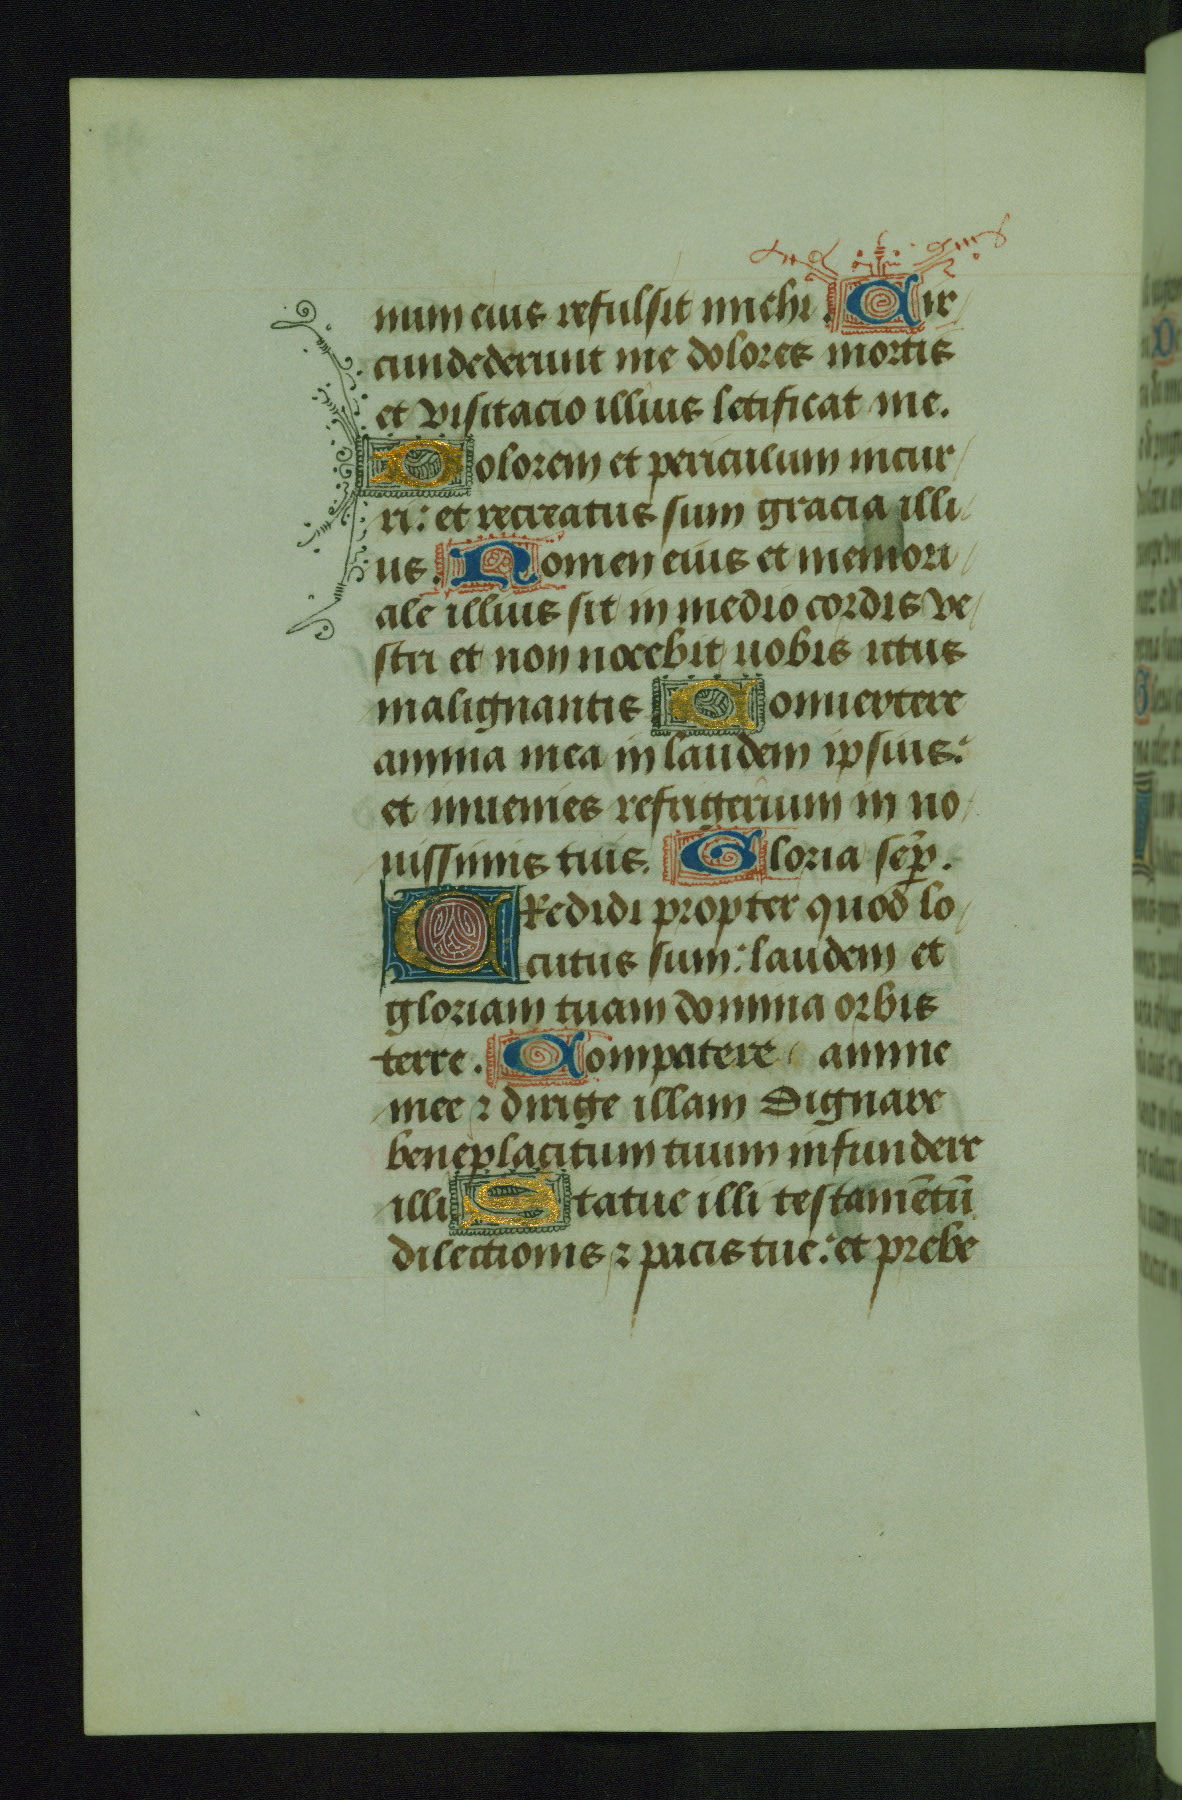 num eius refulsit michi. Cir
cumdederunt me dolores mortis
et visitacio illius letificat me.
Dolorem et periculum incur
ri: et recreatus sum gracia illi
us. Nomen eius et memori
ale illius sit in medio cordis ve
stri et non nocebit uobis ictus
malignantis Conuertere
anima mea in laudem ipsius:
et inuenies refrigerium in no
uissimis tuis. Gloria sep̄.
CRedidi propter quod lo
cutus sum: laudem et
gloriam tuam domina orbis
terre. Compatere anime
mee ⁊ dirige illam Dignare
beneplacitum tuum infundere
illi Statue illi testamētū
dilectionis ⁊ pacis tue: et prebe